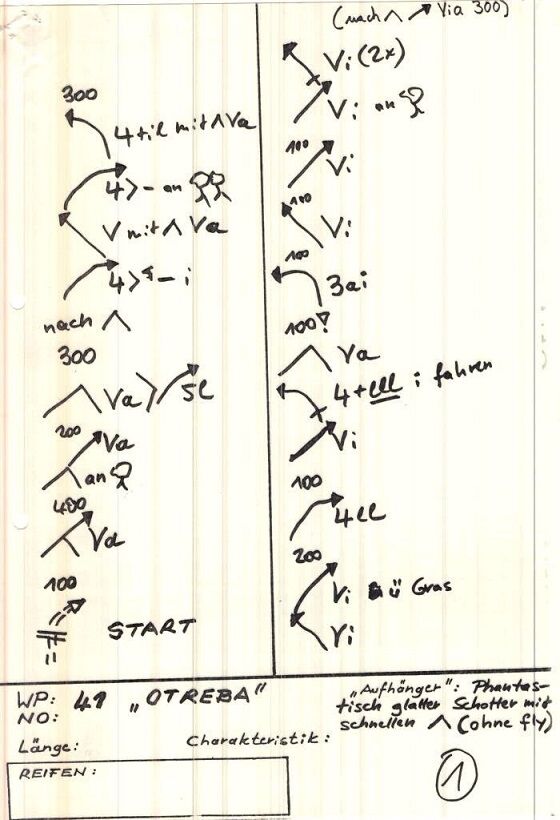 300
4+il mit ∧ Va
4>- an
V mit ∧ Va
4>5 - i
nach ∧
300
Va > 5l
200
Va
an
400
Va
100
START
(nach ∧ ↗ Via 300)
Vi (2x)
Vi an
100
Vi
100
Vi
100
3ai
100!
Va
4+lll i fahren
Vi
100
4ll
200
Vi ü Gras
Vi
WP: 41 „OTREBA"
NO:
„Aufhänger": Phantas-
tisch glatter Schotter mit
schnellen ∧ (ohne fly)
Länge: Charakteristik:
REIFEN:
1